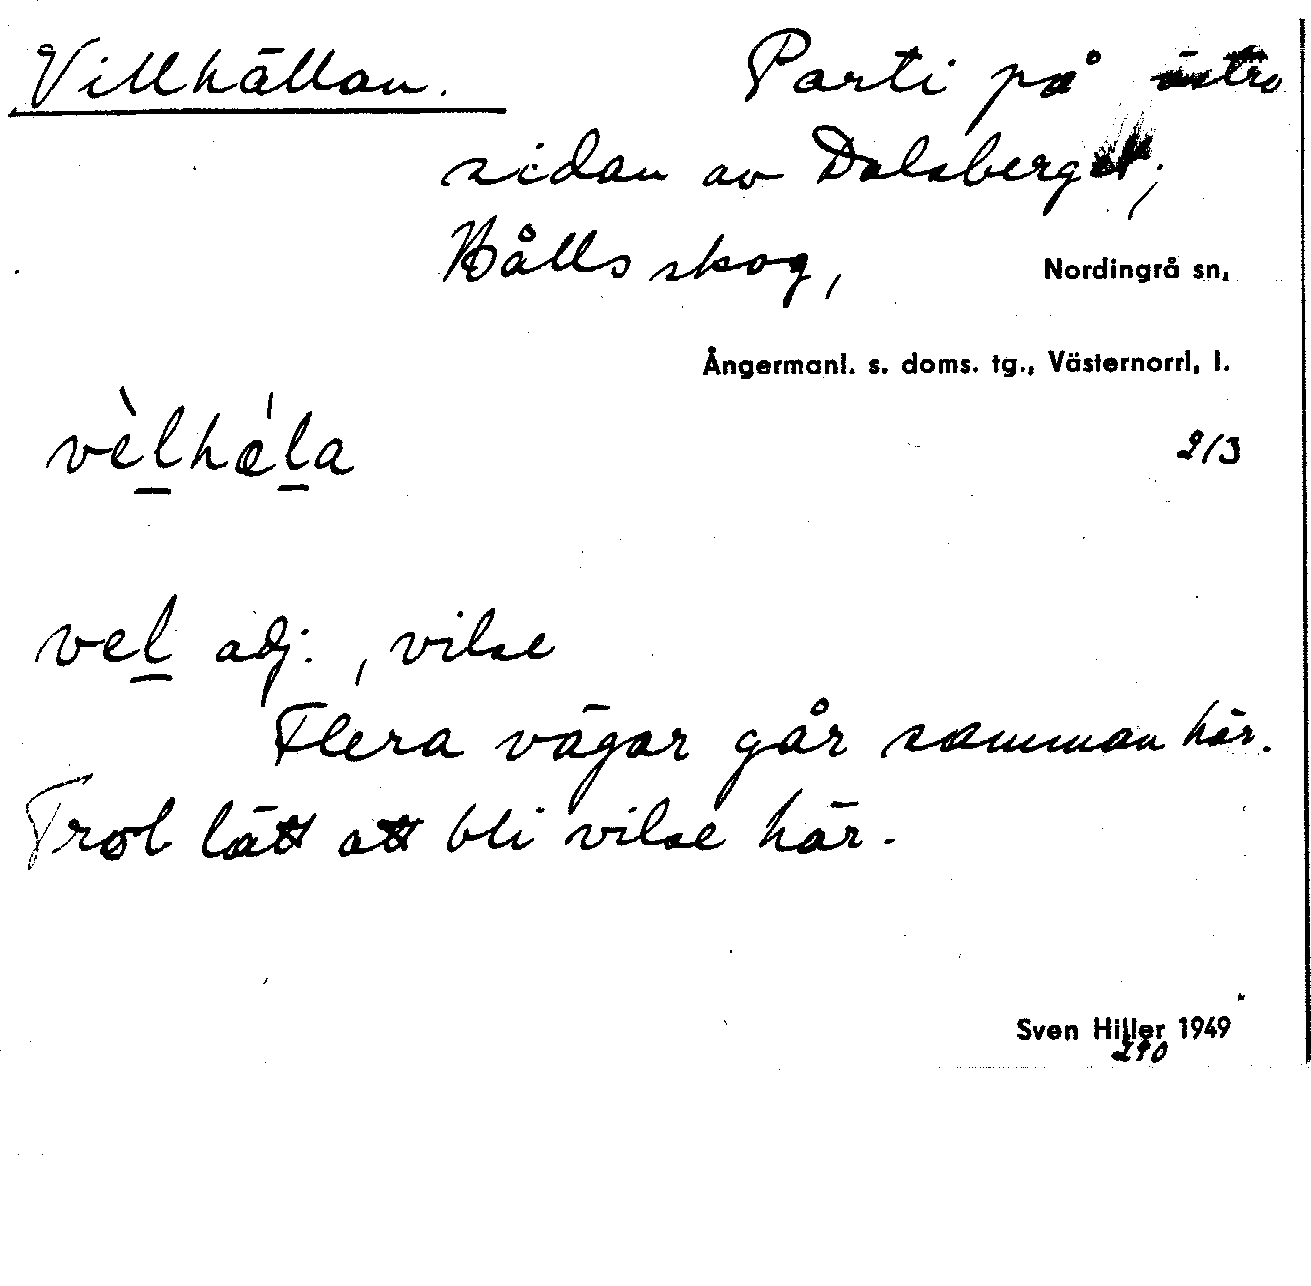 Villhällan. Parti på östra
sidan av Dalsberget,
Hålls skog, Nordingrå sn,
Ångermanl. s. doms. tg., Västernorrl. l.
vèlhéla 2/3
vel adj., vilse
Flera vägar går samman här.
Trol. lätt att bli vilse här.
Sven Hiller 1949
290